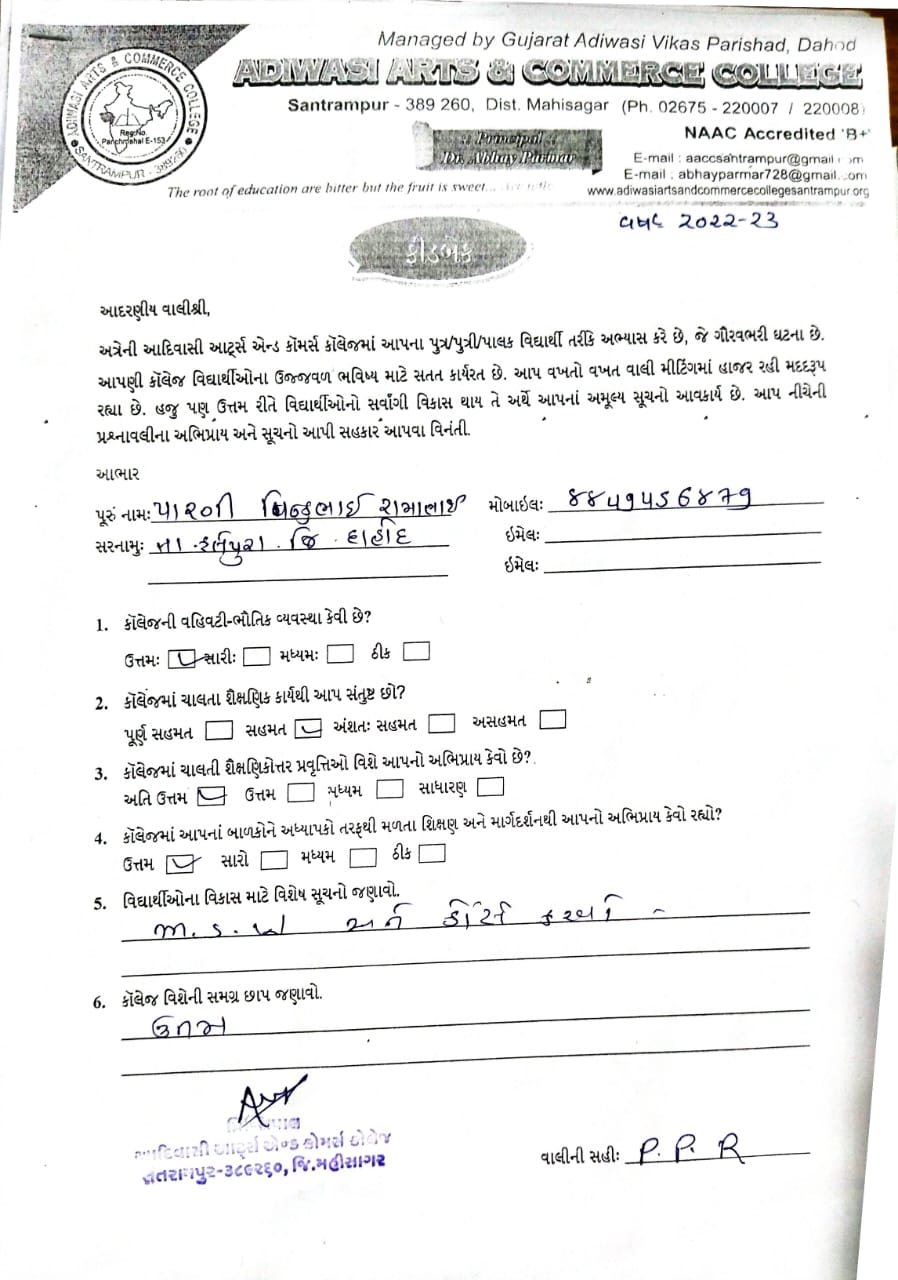 Managed by Gujarat Adiwasi Vikas Parishad, Dahod
ADIWASI ARTS & COMMERCE COLLEGE
Santrampur - 389 260, Dist. Mahisagar (Ph. 02675 - 220007 / 220008)
ADIWASI ARTS & COMMERCE COLLEGE
Reg.No.
Panchmahal E-153
SANTRAMPUR - 389260
:: Principal ::
Dr. Abhay Parmar
NAAC Accredited 'B+'
E-mail : aaccsantrampur@gmail.com
E-mail : abhayparmar728@gmail.com
The root of education are bitter but the fruit is sweet...
www.adiwasiartsandcommercecollegesantrampur.org
2022-23
ફીડબેક
આદરણીય વાલીશ્રી,
અત્રેની આદિવાસી આર્ટ્સ એન્ડ કૉમર્સ કૉલેજમાં આપના પુત્ર/પુત્રી/પાલક વિદ્યાર્થી તરીકે અભ્યાસ કરે છે, જે ગૌરવભરી ઘટના છે.
આપણી કૉલેજ વિદ્યાર્થીઓના ઉજ્જવળ ભવિષ્ય માટે સતત કાર્યરત છે. આપ વખતો વખત વાલી મીટિંગમાં હાજર રહી મદદરૂપ
રહ્યા છે. હજુ પણ ઉત્તમ રીતે વિદ્યાર્થીઓનો સર્વાંગી વિકાસ થાય તે અર્થે આપનાં અમૂલ્ય સૂચનો આવકાર્ય છે. આપ નીચેની
પ્રશ્નાવલીના અભિપ્રાય અને સૂચનો આપી સહકાર આપવા વિનંતી.
આભાર
પૂરું નામઃ પારગી
મોબાઇલઃ 8849456879
સરનામુઃ તા. જિ. દાહોદ
ઇમેલઃ
ઇમેલઃ
1. કૉલેજની વહિવટી-ભૌતિક વ્યવસ્થા કેવી છે?
ઉત્તમઃ સારીઃ મધ્યમઃ ઠીક
2. કૉલેજમાં ચાલતા શૈક્ષણિક કાર્યથી આપ સંતુષ્ટ છો?
પૂર્ણ સહમત સહમત અંશતઃ સહમત અસહમત
3. કૉલેજમાં ચાલતી શૈક્ષણિકોત્તર પ્રવૃત્તિઓ વિશે આપનો અભિપ્રાય કેવો છે?
અતિ ઉત્તમ ઉત્તમ મધ્યમ સાધારણ
4. કૉલેજમાં આપનાં બાળકોને અધ્યાપકો તરફથી મળતા શિક્ષણ અને માર્ગદર્શનથી આપનો અભિપ્રાય કેવો રહ્યો?
ઉત્તમ સારો મધ્યમ ઠીક
5. વિદ્યાર્થીઓના વિકાસ માટે વિશેષ સૂચનો જણાવો.
M.S.W
6. કૉલેજ વિશેની સમગ્ર છાપ જણાવો.
ઉત્તમ
પ્રિન્સિપાલ
આદિવાસી આર્ટ્સ એન્ડ કોમર્સ કોલેજ
સંતરામપુર-૩૮૯૨૬૦, જિ.મહીસાગર
વાલીની સહીઃ P. P. R